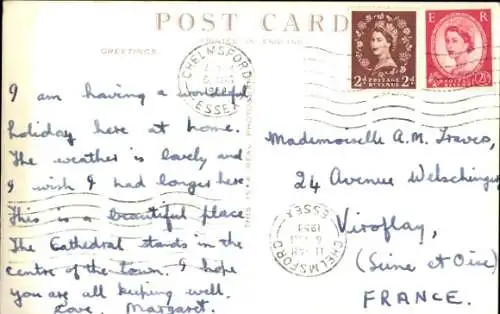 POST CARD
PRINTED IN ENGLAND
GREETINGS
I am having a wonderful
holiday here at home.
The weather is lovely and
I wish I had longer here
This is a beautiful place
The Cathedral stands in the
centre of the town. I hope
you are all keeping well.
Love, Margaret.
CHELMSFORD
ESSEX
2d POSTAGE REVENUE 2d
E R
POSTAGE REVENUE
2½
Mademoiselle A.M. Travers,
24 Avenue Welschinger
Viroflay,
(Seine et Oise)
FRANCE.
CHELMSFORD
ESSEX